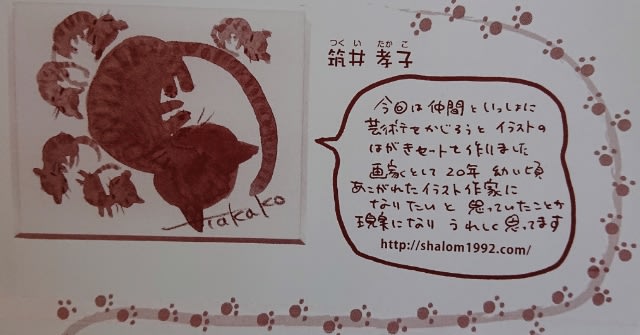 つくい たかこ
筑井 孝子
今回は仲間といっしょに
芸術でせかじろうと イラストの
はがきセットを作りました
画家として20年 幼い頃
あこがれたイラスト作家に
なりたいと 思っていたことが
現実になり うれしく思ってます
http://shalom1992.com/
Takako